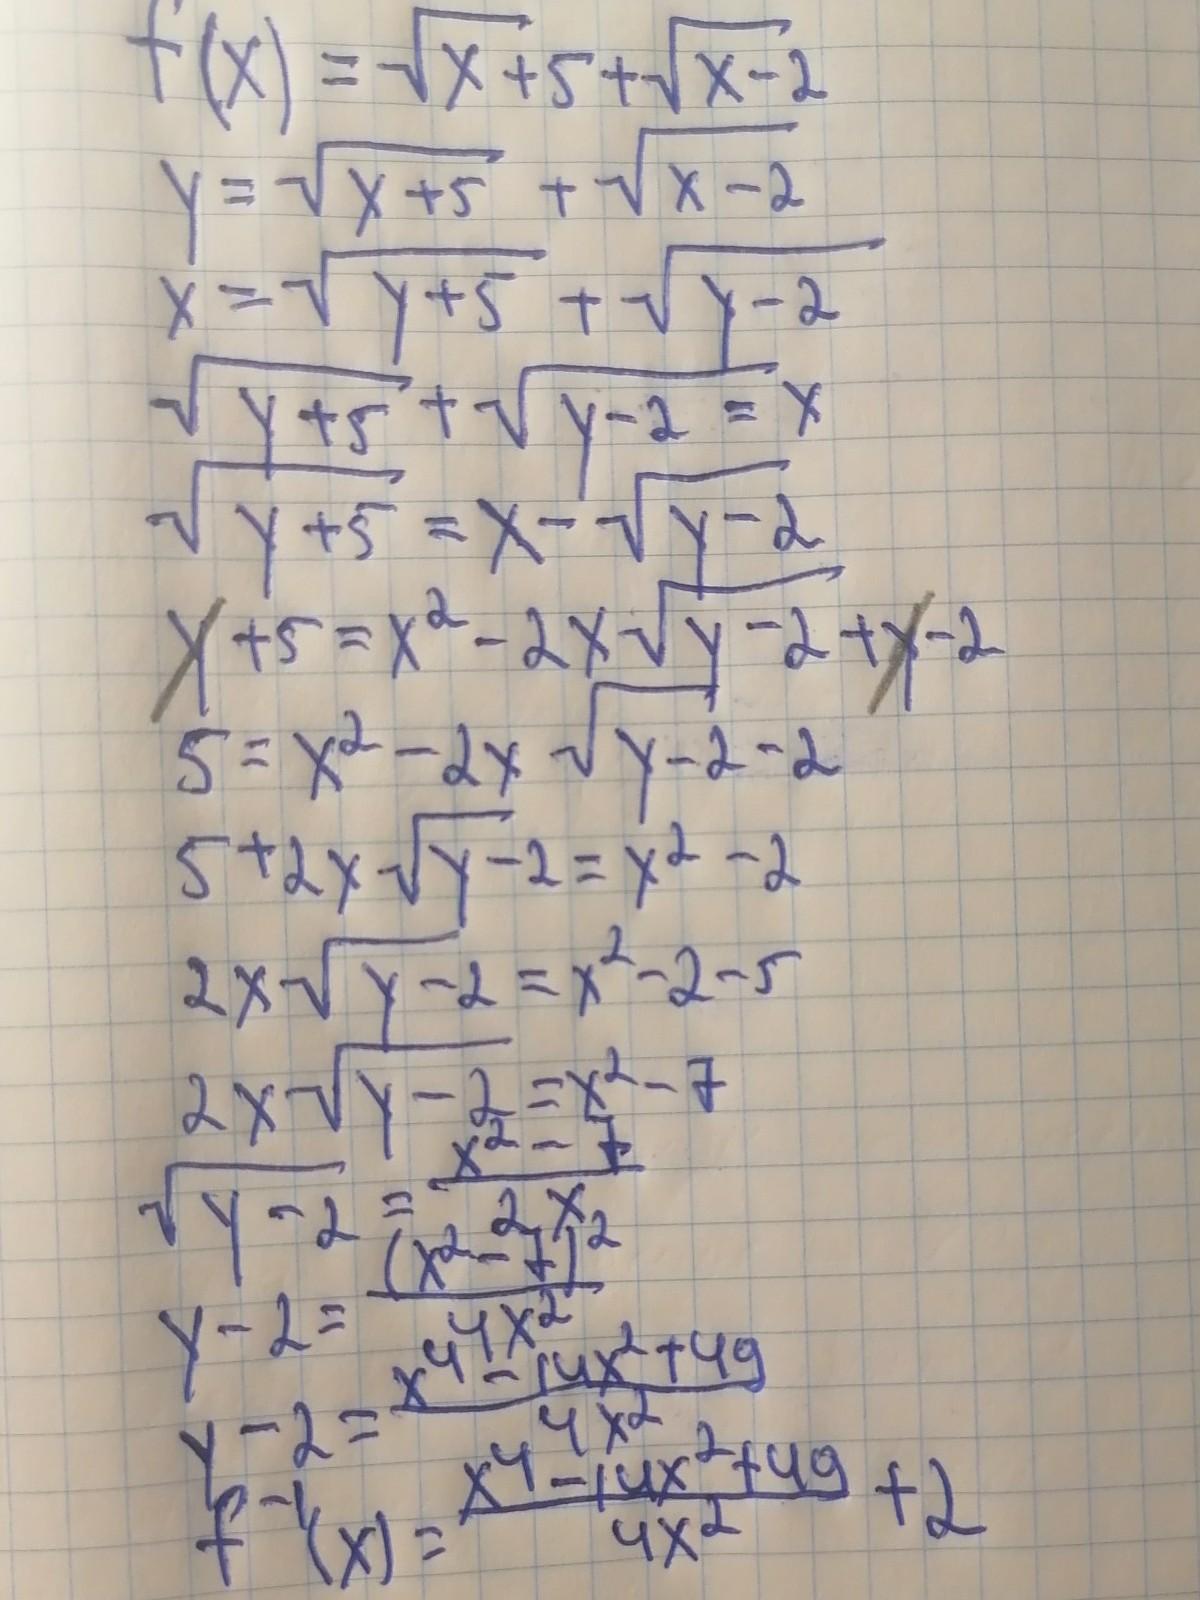 f(x) = √x+5 + √x-2
y = √x+5 + √x-2
x = √y+5 + √y-2
√y+5 + √y-2 = x
√y+5 = x - √y-2
y+5 = x² - 2x√y-2 + y-2
5 = x² - 2x √y-2 - 2
5+2x√y-2 = x² - 2
2x√y-2 = x² - 2 - 5
2x√y-2 = x² - 7
√y-2 = (x² - 7)/(2x)
y-2 = (x²-7)²/(4x²)
y-2 = (x⁴-14x²+49)/(4x²)
f⁻¹(x) = (x⁴-14x²+49)/(4x²) + 2